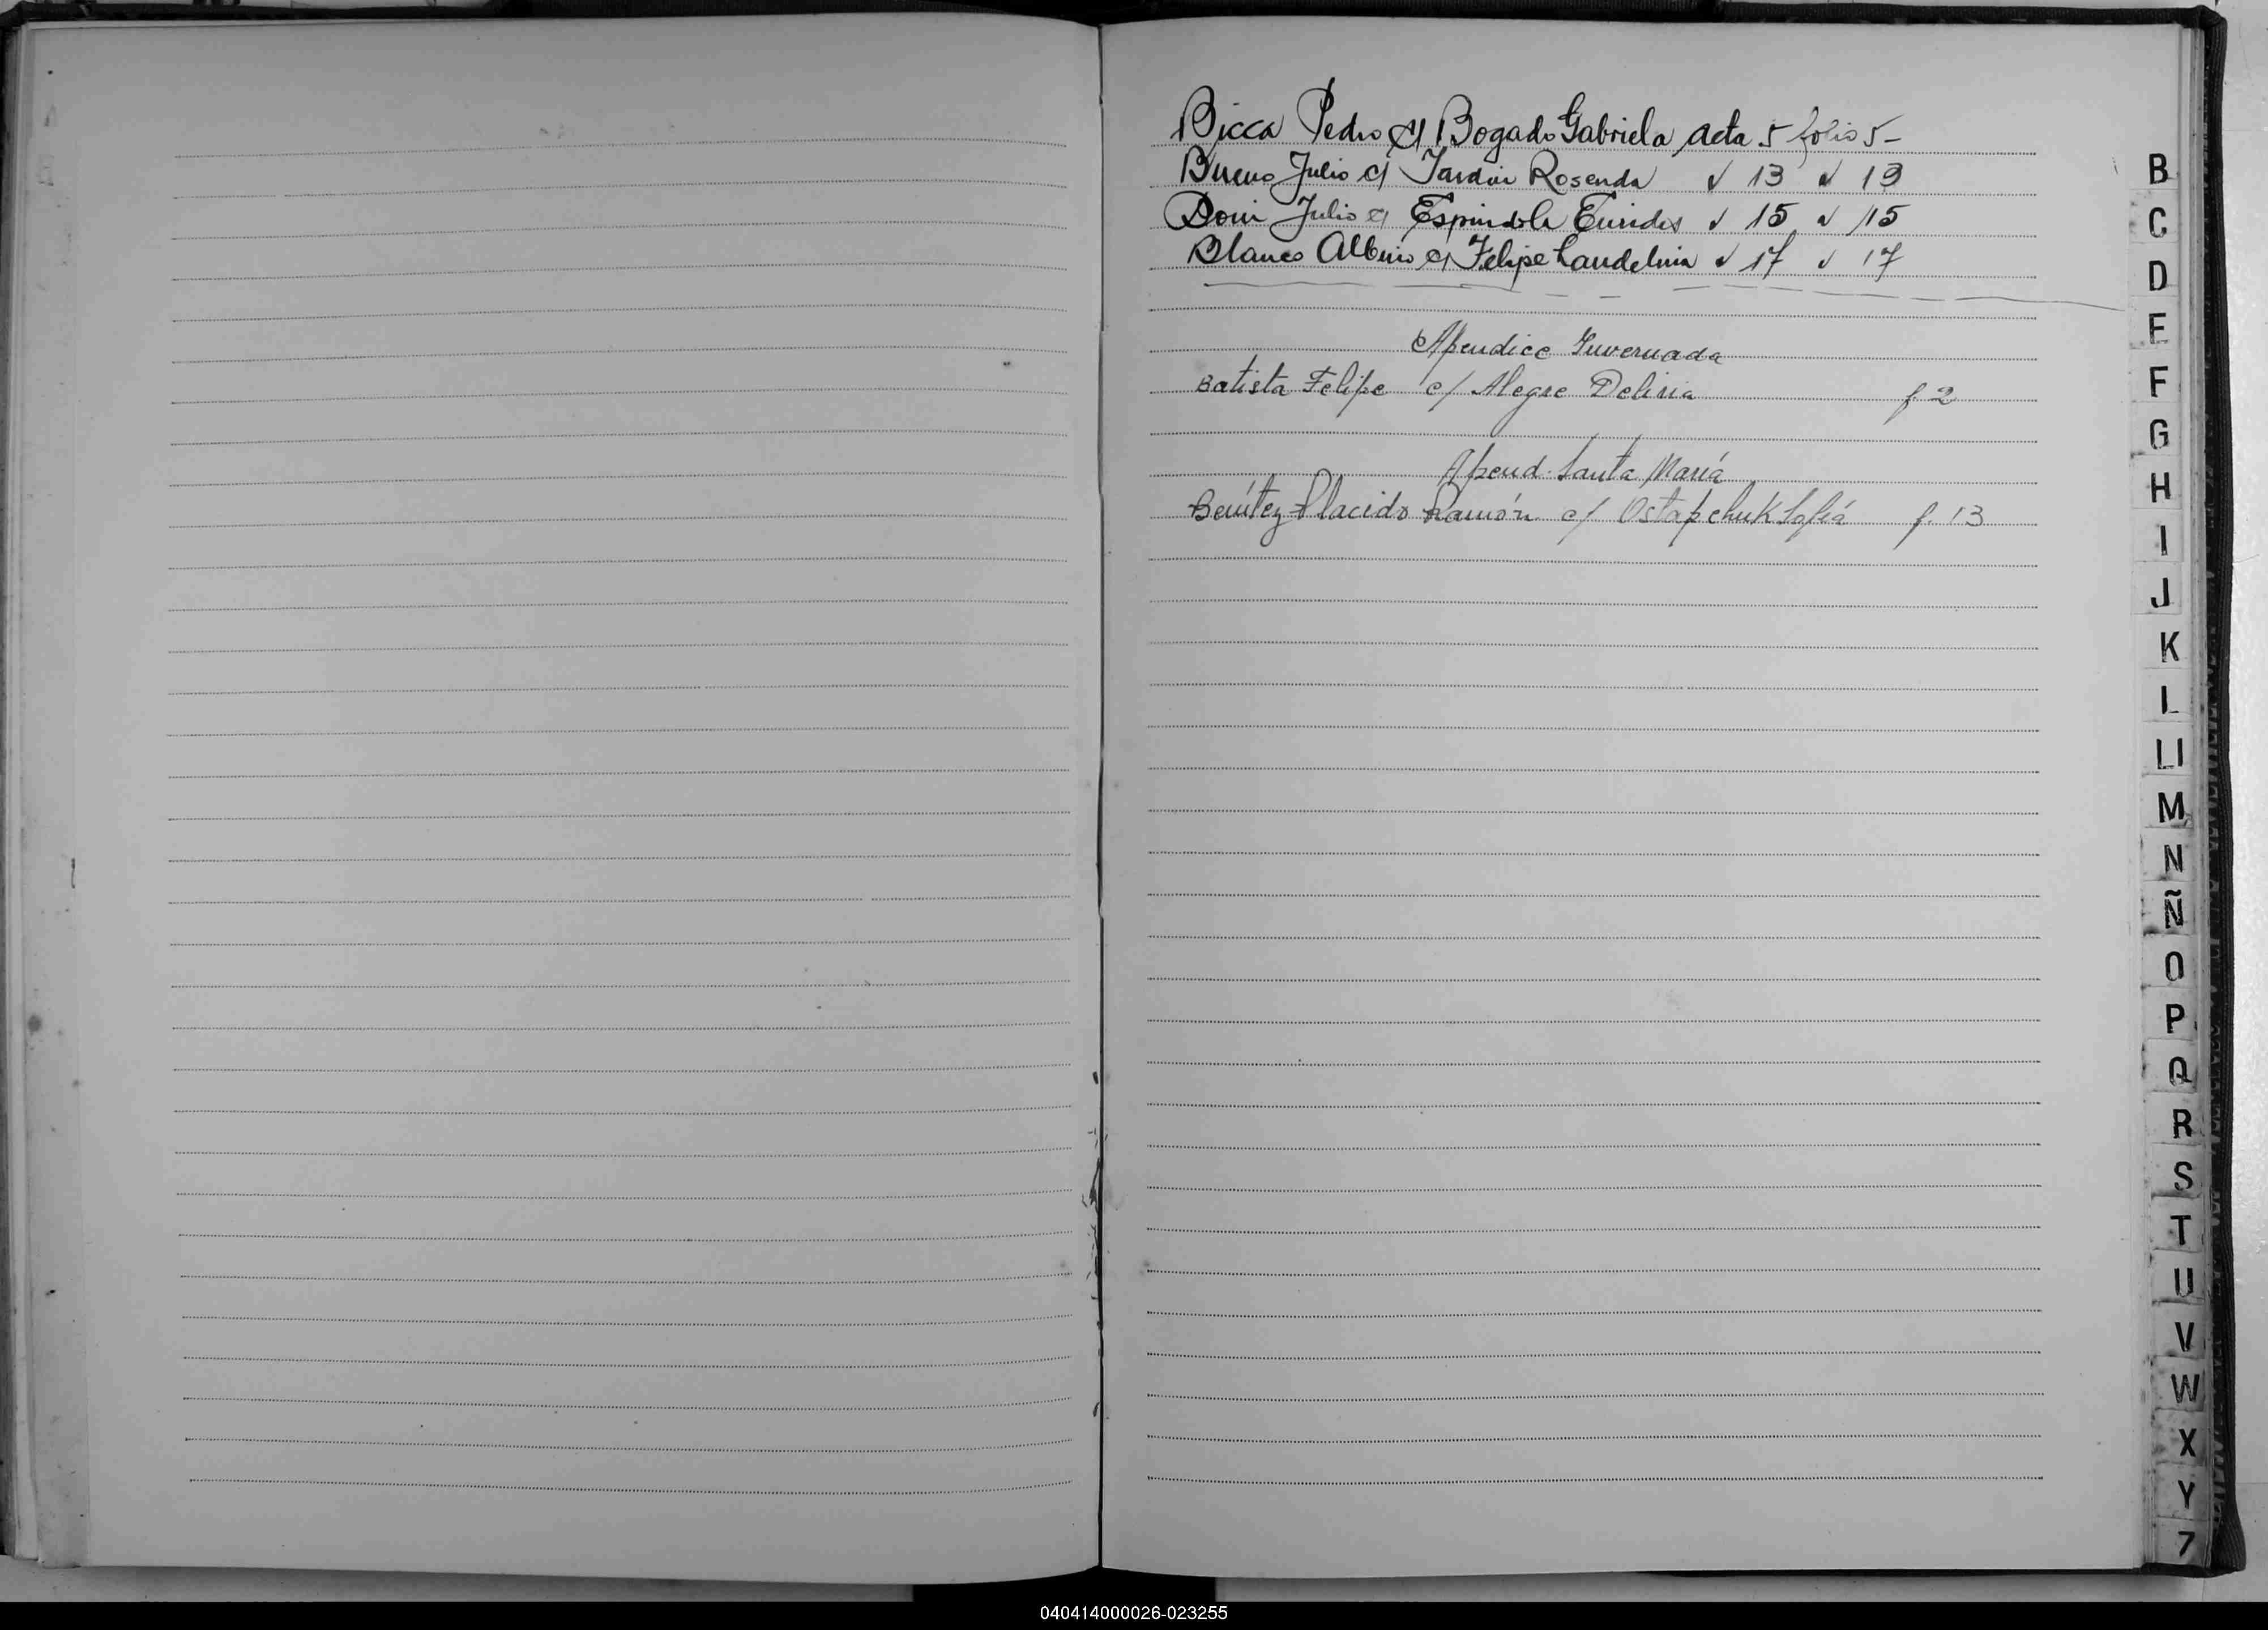 Bicca Pedro c/ Bogado Gabriela acta 5 folio 5-
Bueno Julio c/ Jardin Rosenda √ 13 √ 13
Doni Julio c/ Espindola Eurides √ 15 √ 15
Blanco Albino c/ Felipe Laudelina √ 17 √ 17
Apendice Invernada
Batista Felipe c/ Alegre Deliria f 2
Apend. Santa María
Benítez Plácido Ramón c/ Ostapchuk Sofía f. 13
B
C
D
E
F
G
H
I
J
K
L
Ll
M
N
Ñ
O
P
Q
R
S
T
U
V
W
X
Y
Z
040414000026-023255